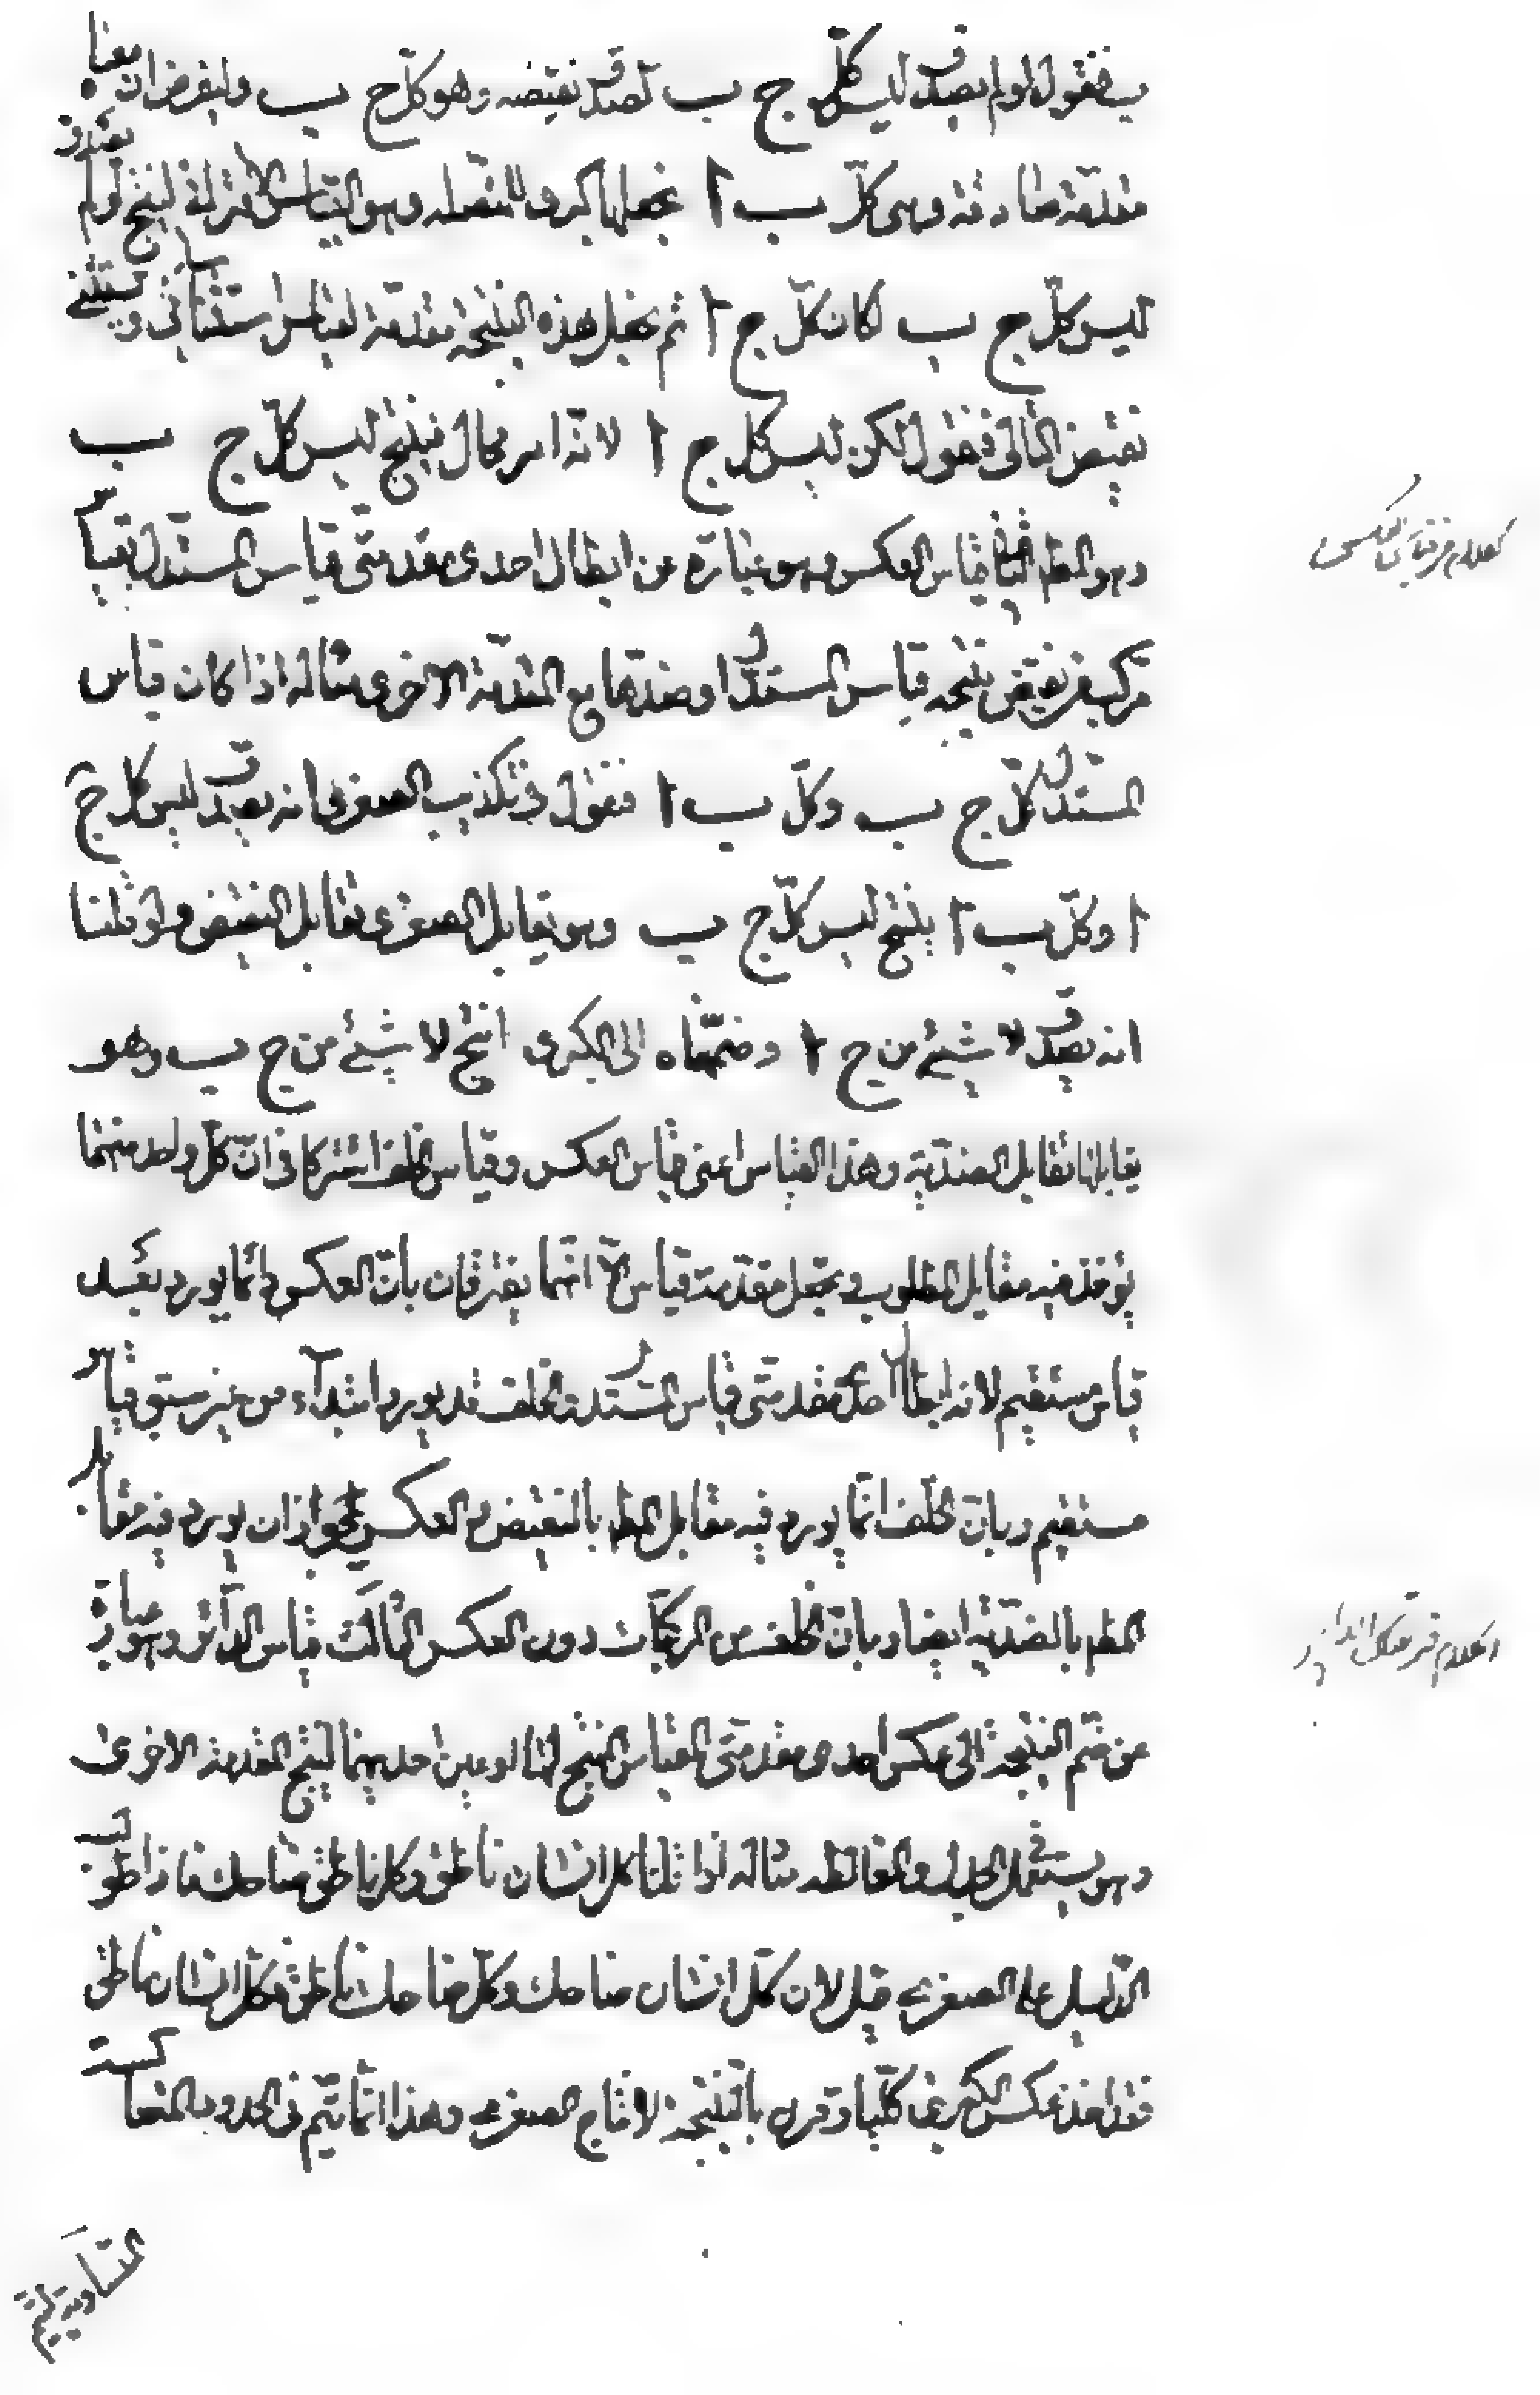 ب فنقول لو لم يصدق ليس كلّ ج ب لصدق نقيضه وهو كلّ ج ب وليفرض ان معنا
مقدّمة صادقة وهى كلّ ب ا نجعلها كبرى للمتصله وهو القياس الاقترانى لينتج لو لم يصدق
ليس كلّ ج ب لكان كلّ ج ا ثم نجعل هذه النتيجة مقدّمة لقياس استثنائى ويستثنى
نقيض التالى فنقول لكن ليس كل ج ا لانّه امر محال فينتج ليس كلّ ج ب
وهو المط الثانى قياس العكس وهو عبارة عن ابطال احدى مقدمتى قياس المستدل بقياس
مركب من نقيض نتيجه قياس المستدل او ضدّها مع المقدّمة الاخرى مثاله اذا كان قياس
المستدل كلّ ج ب وكلّ ب ا فنقول فى تكذيب الصغرى انه يصدق ليس كل ج
ا وكلّ ب ا ينتج ليس كلّ ج ب وهو يقابل الصغرى تقابل النقيض ولو قلنا
انه يصدق لا شيئ من ج ا وضمّمناه الى الكبرى انتج لا شيئ من ج ب وهو
يقابلها تقابل الضدّية وهذا القياس اعنى قياس العكس وقياس الخلف اشتركا فى انّ كلّ واحد منهما
يؤخذ فيه مقابل المطلوب ويجعل مقدّمة قياس الا انّهما يفترقان بانّ العكس دائما يورد بعد
قياس مستقيم لانه ابطال احدى مقدمتى قياس المستدل والخلف قد يورد ابتدآء من غير سبق قياس
مستقيم وبانّ الخلف انّما يورد فيه مقابل المط بالنقيض والعكس لجواز ان يورد فيه مقابل
المط بالضدّية ايضا وبانّ الخلف من المركبّات دون العكس الثالث قياس الدآئر وهو عبارة
عن ضمّ النتيجة الى عكس احدى مقدمتى القياس المنتج لها او عين احديهما لينتج المقدمة الاخرى
وهو يستعمل فى الجدل والمغالطه مثاله اذا قلنا كل انسان ناطق وكل ناطق ضاحك فاذا طولب
الدّليل على الصغرى قيل لان كلّ انسان ضاحك وكلّ ضاحك ناطق فكلّ انسان ناطق
فقد اخذ عكس الكبرى كلّيا وقرن بالنتيجة لانتاج الصغرى وهذا انّما يتم فى الحدود المتعاكسة
المتساوية